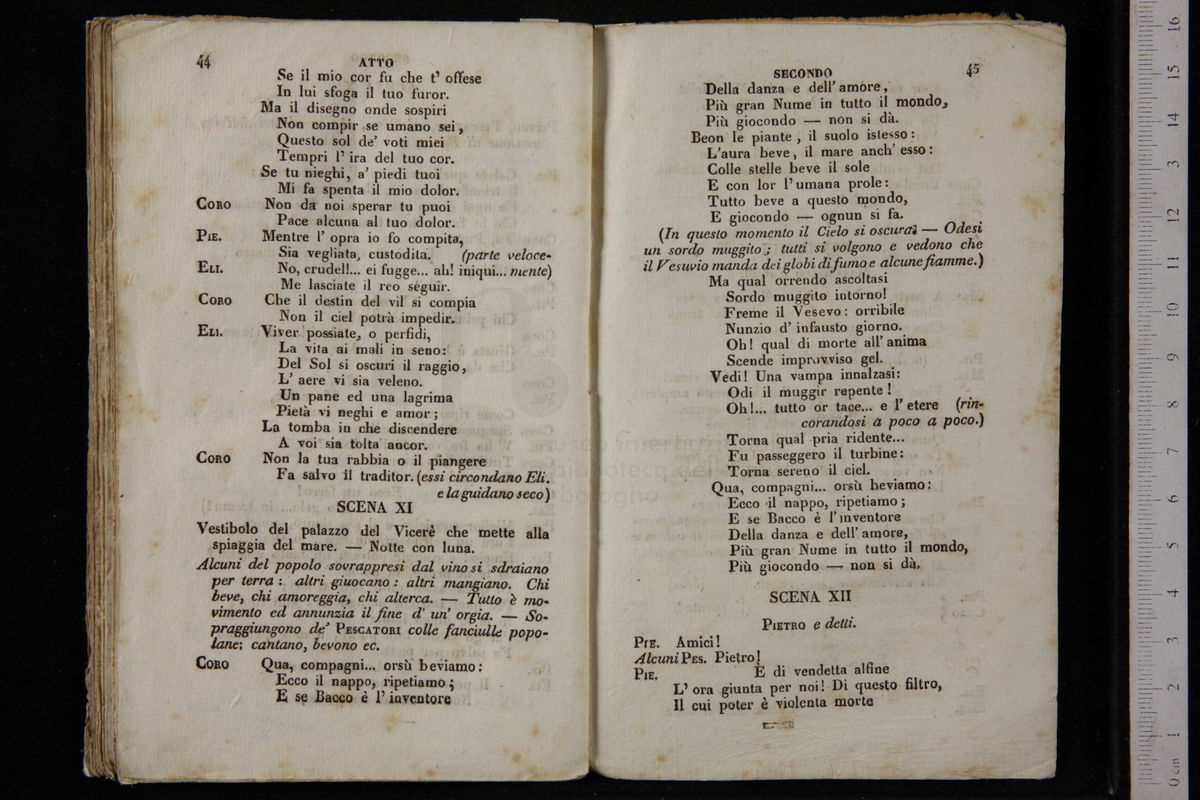 44
ATTO
Se il mio cor fu che t' offese
In lui sfoga il tuo furor.
Ma il disegno onde sospiri
Non compir se umano sei,
Questo sol de' voti miei
Tempri l' ira del tuo cor.
Se tu nieghi, a' piedi tuoi
Mi fa spenta il mio dolor.
CORO Non da noi sperar tu puoi
Pace alcuna al tuo dolor.
PIE. Mentre l' opra io fo compita,
Sia vegliata, custodita. (parte veloce-
ELI. No, crudel!... ei fugge... ah! iniqui... mente)
Me lasciate il reo seguir.
CORO Che il destin del vil si compia
Non il ciel potrà impedir.
ELI. Viver possiate, o perfidi,
La vita ai mali in seno:
Del Sol si oscuri il raggio,
L' aere vi sia veleno.
Un pane ed una lagrima
Pietà vi neghi e amor;
La tomba in che discendere
A voi sia tolta ancor.
CORO Non la tua rabbia o il piangere
Fa salvo il traditor. (essi circondano Eli.
e la guidano seco)
SCENA XI
Vestibolo del palazzo del Vicerè che mette alla
spiaggia del mare. — Notte con luna.
Alcuni del popolo sovrappresi dal vino si sdraiano
per terra: altri giuocano: altri mangiano. Chi
beve, chi amoreggia, chi alterca. — Tutto è mo-
vimento ed annunzia il fine d' un' orgia. — So-
praggiungono de' PESCATORI colle fanciulle popo-
lane; cantano, bevono ec.
CORO Qua, compagni... orsù beviamo:
Ecco il nappo, ripetiamo;
E se Bacco è l' inventore
SECONDO
45
Della danza e dell' amore,
Più gran Nume in tutto il mondo,
Più giocondo — non si dà.
Beon le piante, il suolo istesso:
L'aura beve, il mare anch' esso:
Colle stelle beve il sole
E con lor l' umana prole:
Tutto beve a questo mondo,
E giocondo — ognun si fa.
(In questo momento il Cielo si oscura: — Odesi
un sordo muggito; tutti si volgono e vedono che
il Vesuvio manda dei globi di fumo e alcune fiamme.)
Ma qual orrendo ascoltasi
Sordo muggito intorno!
Freme il Vesevo: orribile
Nunzio d' infausto giorno.
Oh! qual di morte all' anima
Scende improvviso gel.
Vedi! Una vampa innalzasi:
Odi il muggir repente!
Oh!... tutto or tace... e l' etere (rin-
corandosi a poco a poco.)
Torna qual pria ridente...
Fu passeggero il turbine:
Torna sereno il ciel.
Qua, compagni... orsù beviamo:
Ecco il nappo, ripetiamo;
E se Bacco è l' inventore
Della danza e dell' amore,
Più gran Nume in tutto il mondo,
Più giocondo — non si dà.
SCENA XII
PIETRO e detti.
PIE. Amici!
Alcuni PES. Pietro!
PIE. E di vendetta alfine
L' ora giunta per noi! Di questo filtro,
Il cui poter è violenta morte